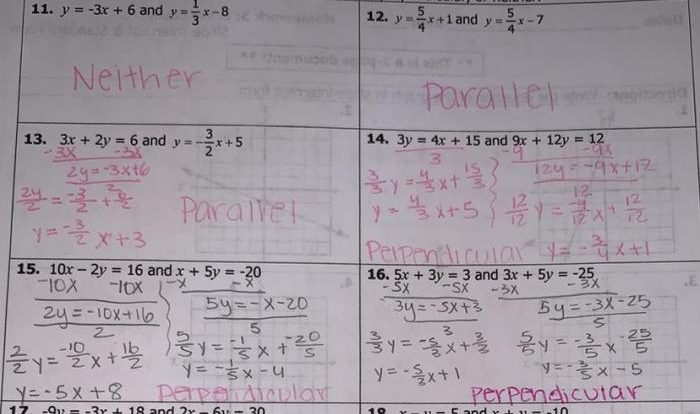 11. y = -3x + 6 and y = 1/3 x - 8
Neither
12. y = 5/4 x + 1 and y = 5/4 x - 7
Parallel
13. 3x + 2y = 6 and y = -3/2 x + 5
-3x -3x
2y = -3x+6
2y/2 = -3/2 + 6/2
y = -3/2 x + 3
Parallel
14. 3y = 4x + 15 and 9x + 12y = 12
3
3/3 y = 4/3 x + 15/3
y = 4/3 x + 5
-9 -9x
12y = -9x + 12
12
12/12 y = -9/12 x + 12/12
y = -3/4 x + 1
Perpendicular
15. 10x – 2y = 16 and x + 5y = -20
-10x -10x
2y = -10x + 16
2
2/2 y = -10/2 x + 16/2
y = -5x + 8
-x -x
5y = -x - 20
5
5/5 y = -1/5 x + -20/5
y = -1/5 x - 4
Perpendicular
16. 5x + 3y = 3 and 3x + 5y = -25
-5x -5x
3y = -5x + 3
3
3/3 y = -5/3 x + 3/3
y = -5/3 x + 1
-3x -3x
5y = -3x - 25
5
5/5 y = -3/5 x -25/5
y = -3/5 x - 5
perpendicular
17. -9y = -3x + 18 and 2x – 6y = 30